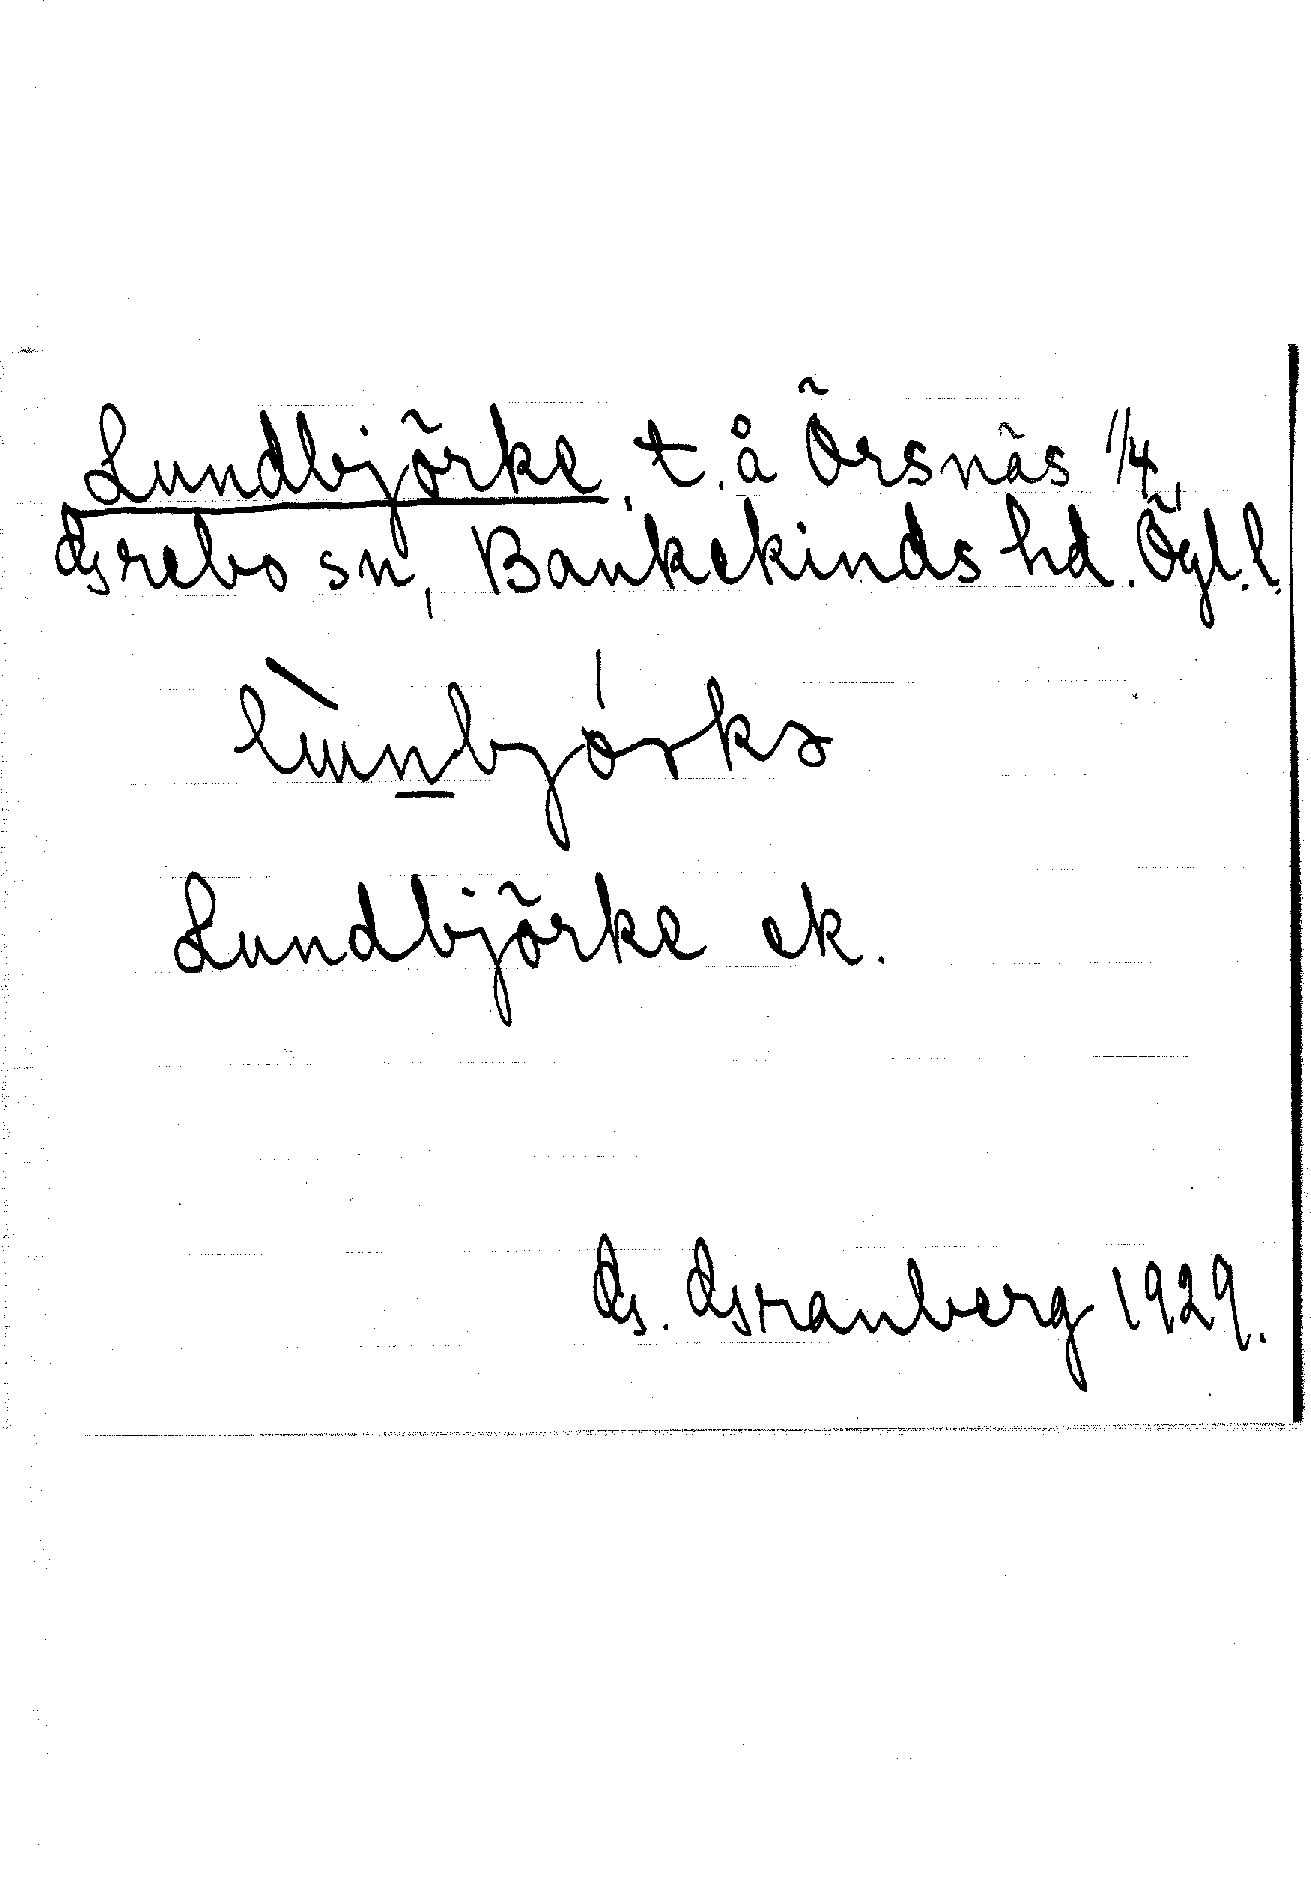 Lundbjörke, t. å Örsnäs 1/4,
Grebo sn, Bankekinds hd. Ögl. l.
Lundbjörke ek.
G. Granberg 1929.